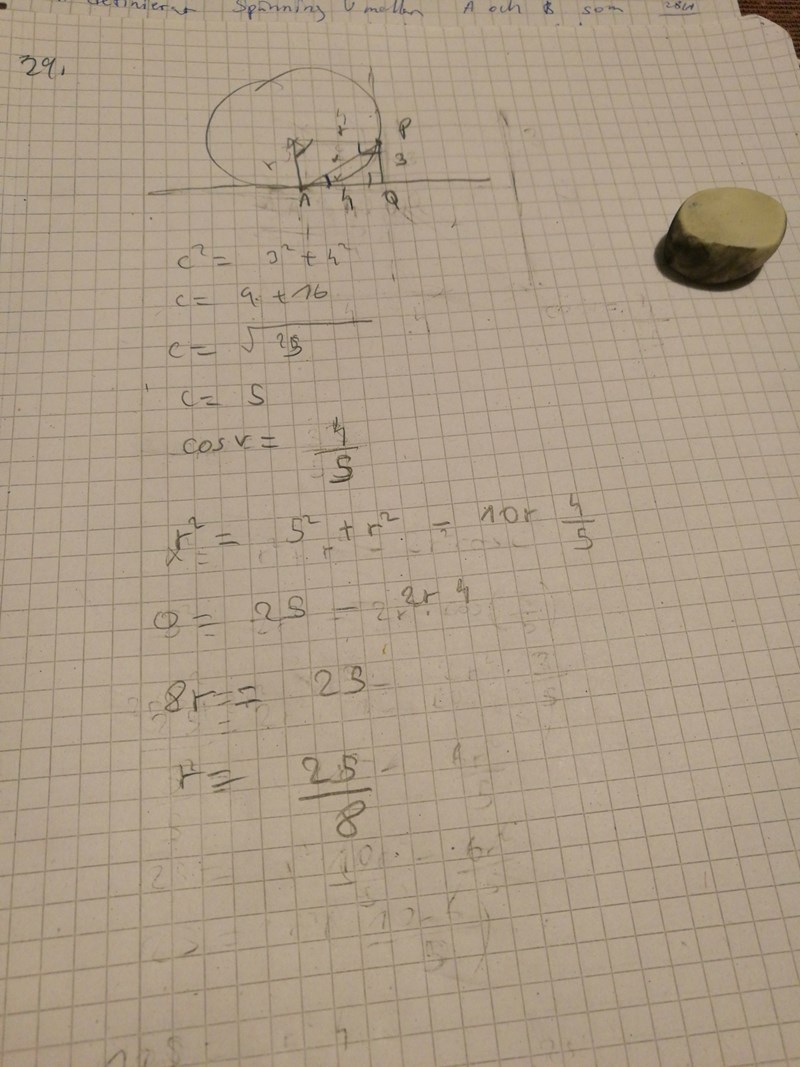 Spänning U mellan A och B som
29.
P
3
r
A
4
Q
c² = 3² + 4²
c = 9 + 16
c = √25
c = 5
cos v = 4/5
r² = 5² + r² = 10r 4/5
0 = 25 - 2r 4
8r = 25
r = 25/8